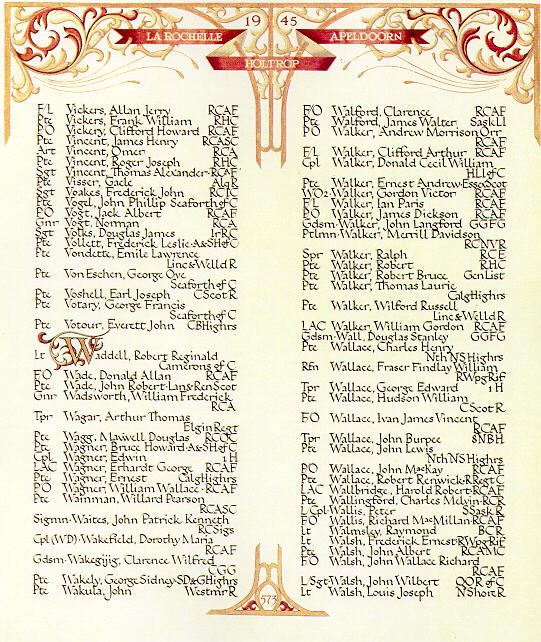 19 45
LA ROCHELLE
APELDOORN
HOLTROP
F/L Vickers, Allan Jerry RCAF
Pte Vickers, Frank William RHC
P/O Vickery, Clifford Howard RCAF
Pte Vincent, James Henry RCASC
Art Vincent, Omer RCA
Pte Vincent, Roger Joseph RHC
Sgt Vincent, Thomas Alexander-RCAF
Pte Visser, Gaele AlgR
Sgt Voakes, Frederick John RCIC
Pte Vogel, John Phillip SeaforthofC
P/O Vogt, Jack Albert RCAF
Gnr Vogt, Norman RCA
Sgt Volks, Douglas James IrRC
Pte Vollett, Frederick Leslie-A&SHofC
Pte Vondette, Emile Lawrence
Linc&WelldR
Pte Von Eschen, George Oye
SeaforthofC
Pte Voshell, Earl Joseph CScotR
Pte Votary, George Francis
SeaforthofC
Pte Votour, Everett John CBHighrs
Lt Waddell, Robert Reginald
Camerons of C
F/O Wade, Donald Allan RCAF
Pte Wade, John Robert-Lan&RenScot
Gnr Wadsworth, William Frederick
RCA
Tpr Wagar, Arthur Thomas
ElginRegt
Pte Wagg, Maxwell Douglas RCOC
Pte Wagner, Bruce Howard-A&SHofC
Cpl Wagner, Edwin 1 H
LAC Wagner, Erhardt George RCAF
Pte Wagner, Ernest CalgHighrs
P/O Wagner, William Wallace-RCAF
Pte Wainman, Willard Pearson
RCASC
Sigmn-Waites, John Patrick Kenneth
RCSigs
Cpl (WD)-Wakefield, Dorothy Maria
RCAF
Gdsm-Wakegijig, Clarence Wilfred
CGG
Pte Wakely, George Sidney-SD&GHighrs
Pte Wakula, John WestmrR
F/O Walford, Clarence RCAF
Pte Walford, James Walter SaskLI
P/O Walker, Andrew Morrison Orr
RCAF
F/L Walker, Clifford Arthur RCAF
Cpl Walker, Donald Cecil William
HLIofC
Pte Walker, Ernest Andrew-EssexScot
WO2 Walker, Gordon Victor RCAF
F/L Walker, Ian Paris RCAF
P/O Walker, James Dickson RCAF
Gdsm-Walker, John Langford GGFG
Ptlmn-Walker, Merrill Davidson
RCNVR
Spr Walker, Ralph RCE
Pte Walker, Robert RHC
Pte Walker, Robert Bruce GenList
Pte Walker, Thomas Laurie
CalgHighrs
Pte Walker, Wilford Russell
Linc&WelldR
LAC Walker, William Gordon RCAF
Gdsm-Wall, Douglas Stanley GGFG
Pte Wallace, Charles Henry
NthNSHighrs
Rfn Wallace, Fraser Findlay William
RWpgRif
Tpr Wallace, George Edward 1 H
Pte Wallace, Hudson William
CScotR
F/O Wallace, Ivan James Vincent
RCAF
Tpr Wallace, John Burpee 8NBH
Pte Wallace, John Lewis
NthNSHighrs
P/O Wallace, John MacKay RCAF
Pte Wallace, Robert Renwick-RRegtC
LAC Wallbridge, Harold Robert-RCAF
Pte Wallingford, Charles Melvin-RCR
L/Cpl-Wallis, Peter SSaskR
F/O Wallis, Richard MacMillan-RCAF
Lt Walmsley, Raymond BCR
Lt Walsh, Frederick Ernest-RWpgRif
Pte Walsh, John Albert RCAMC
F/O Walsh, John Wallace Richard
RCAF
L/Sgt-Walsh, John Wilbert QOR of C
Lt Walsh, Louis Joseph NShoreR
573